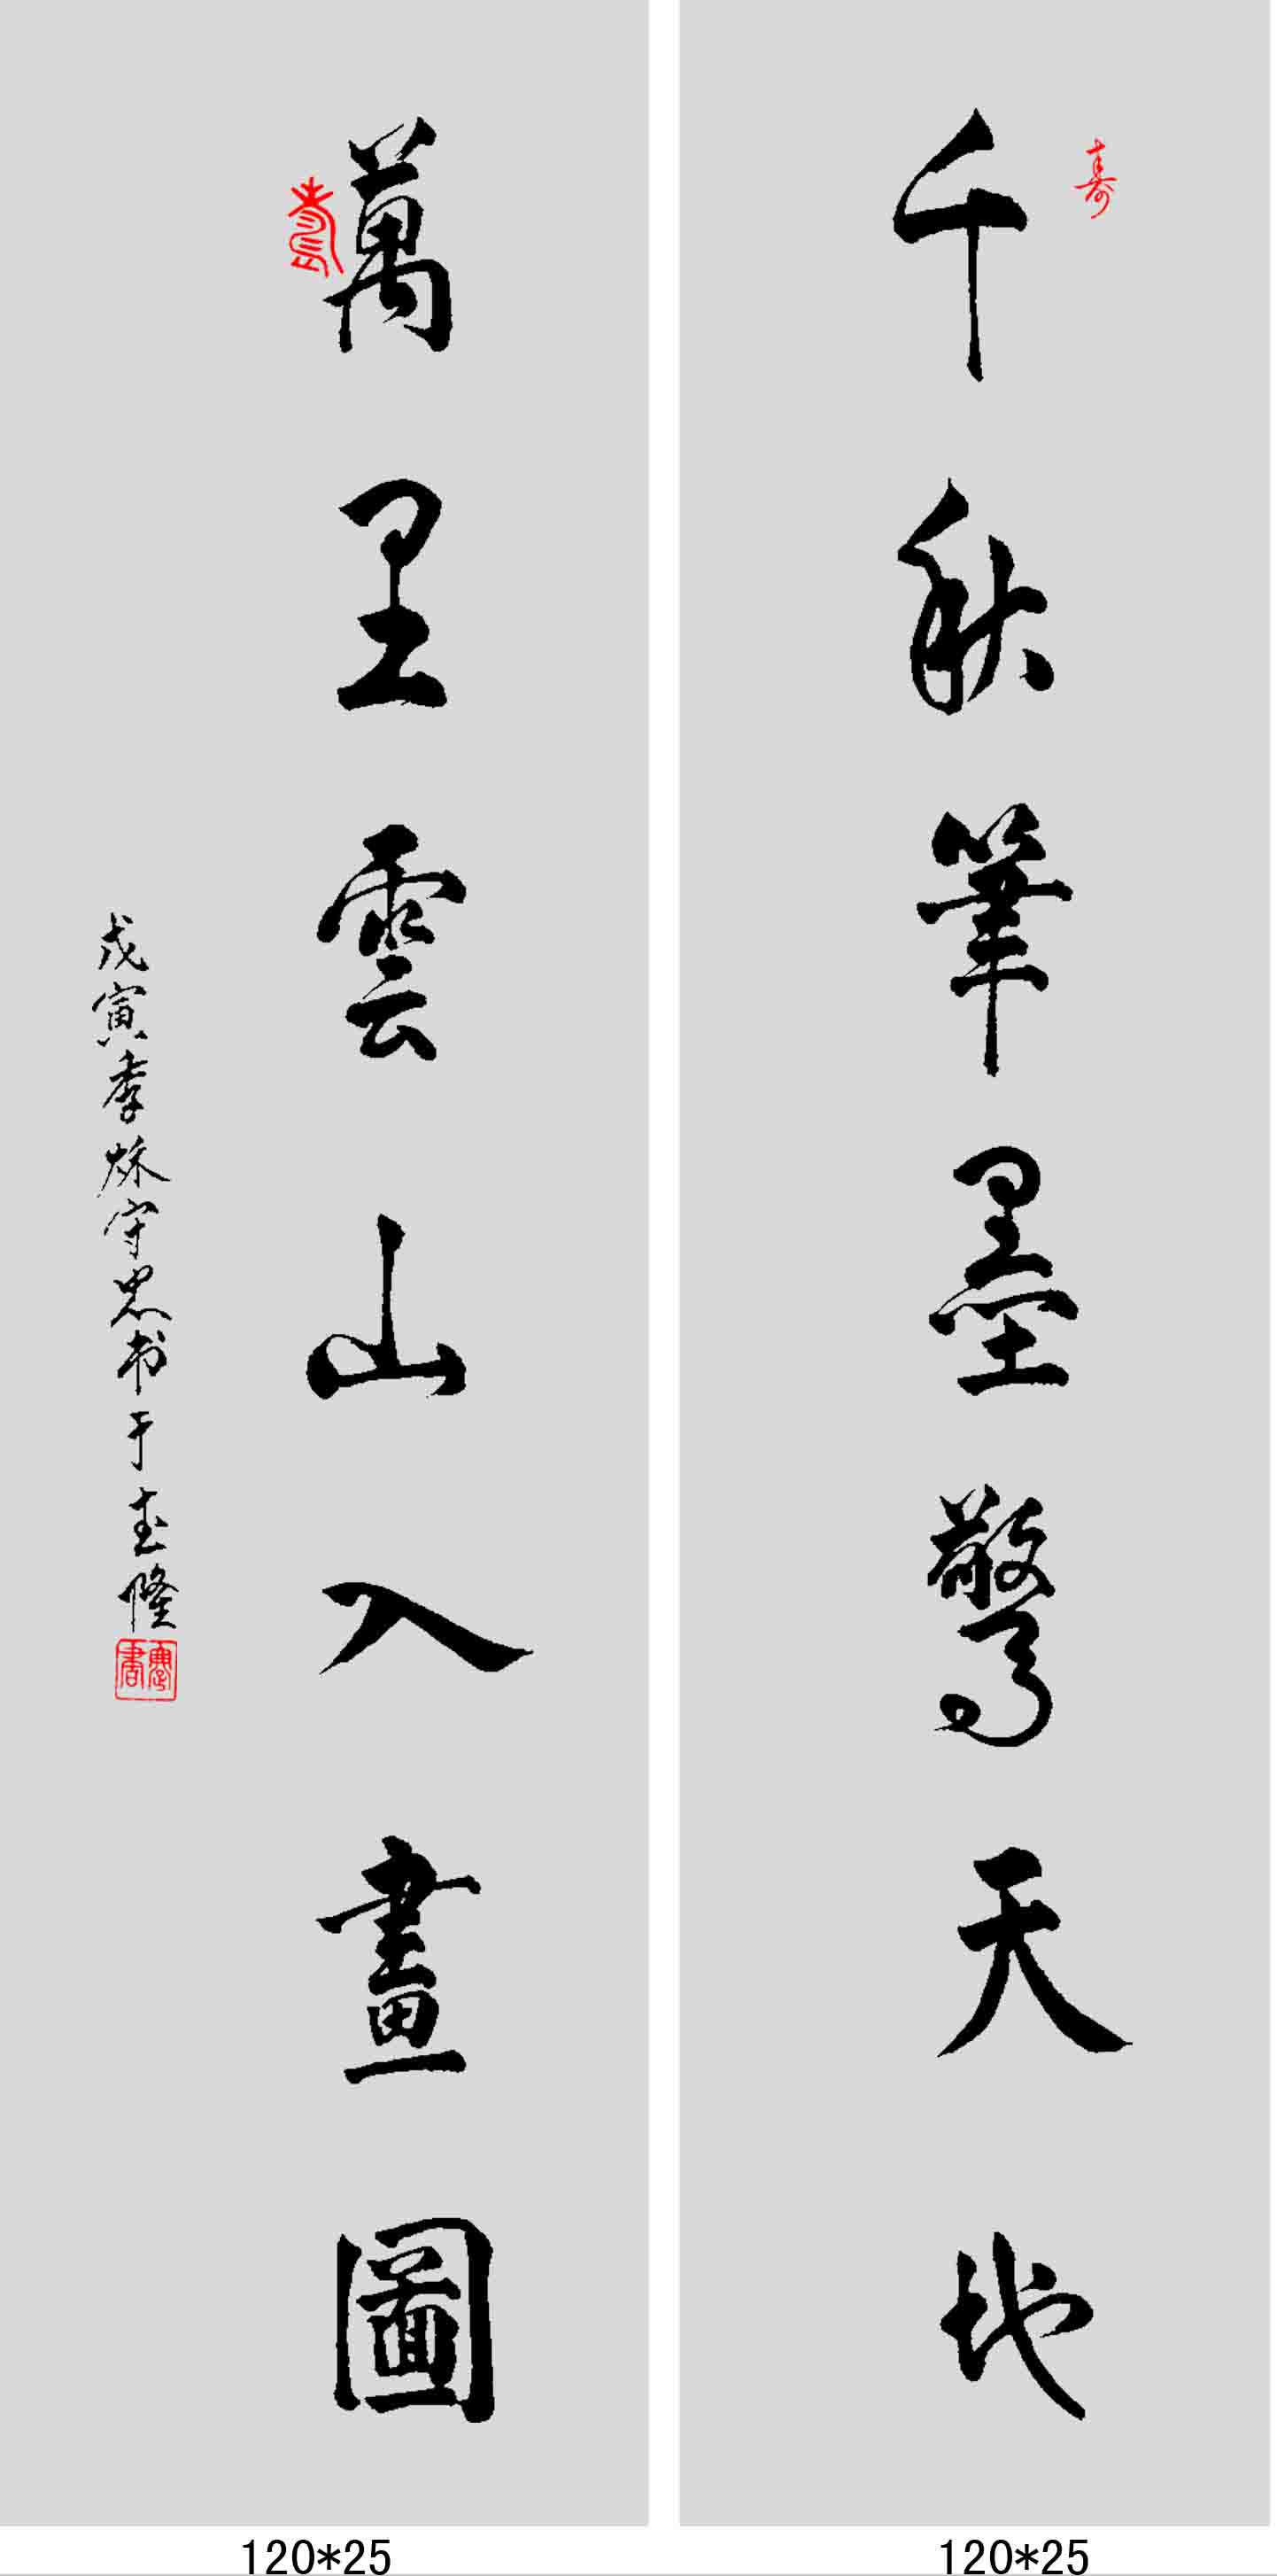 寿
千秋筆墨驚天地
壽
萬里雲山入畫圖
戊寅季秋守忠书于武隆
120*25
120*25